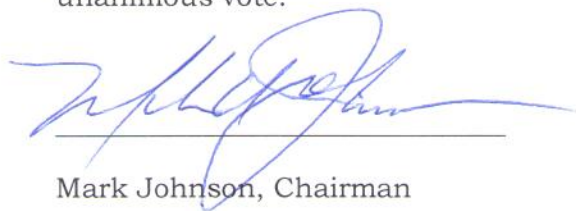 unanimous vote.
Mark Johnson, Chairman